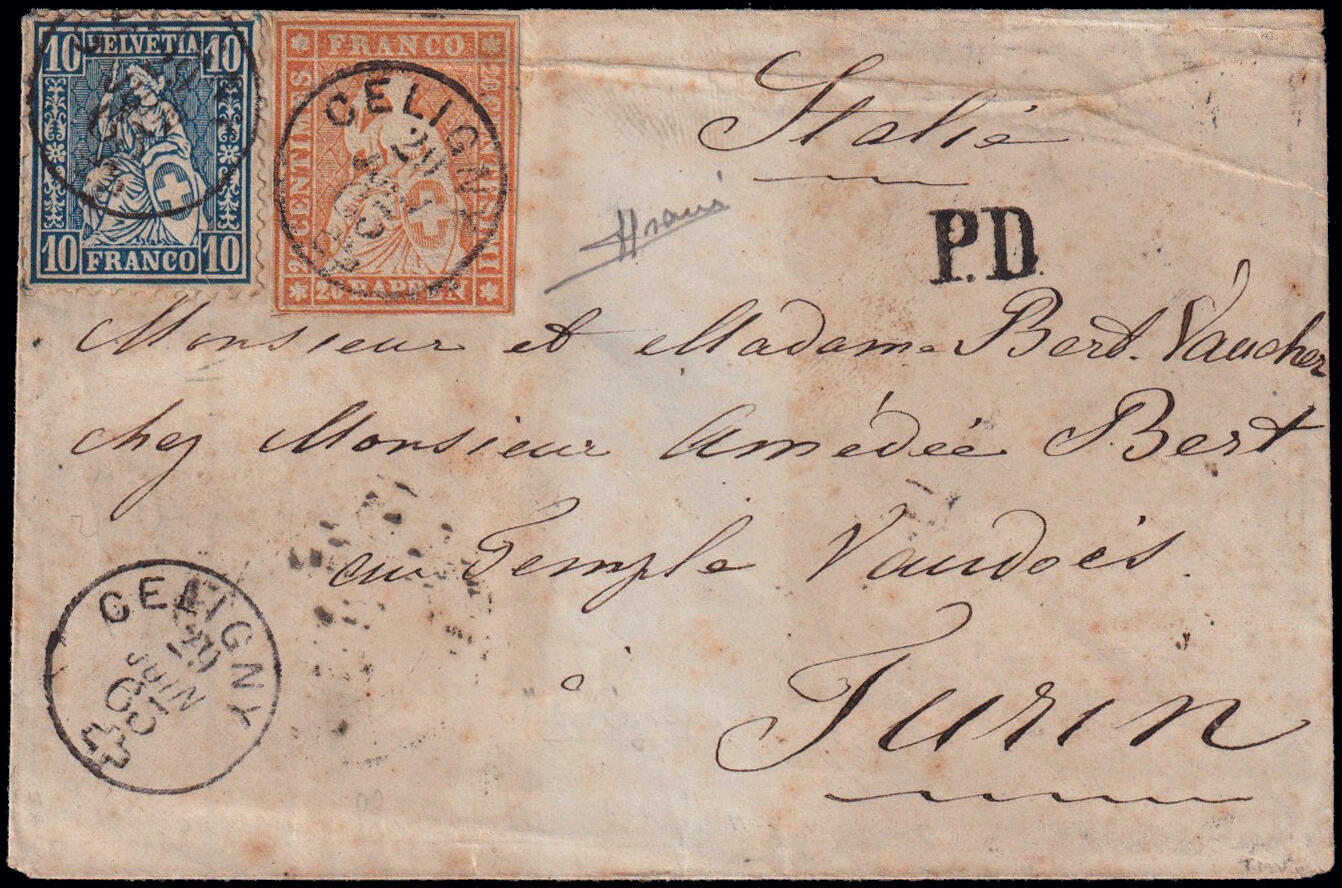 10 HELVETIA 10
10 FRANCO 10
FRANCO
20 CENTIMES
20 CENTESIMI
20 RAPPEN
CELIGNY
29
Italié
P.D.
Monsieur et Madame Bert. Vaucher
chez Monsieur Amédée Bert
au Temple Vaudois.
à
Turin
CELIGNY
29
JUIN